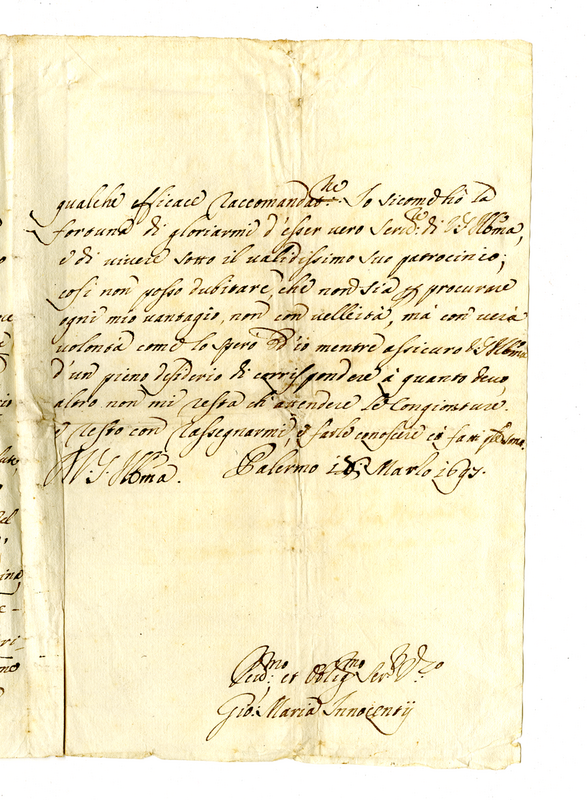 qualche efficace raccomandat.ne Io sicome hò la
fortuna di gloriarmi d'esser vero Serv.e di V.S. Ill.ma,
e di vivere sotto il validissimo suo patrocinio;
così non posso dubitare, che non sia p procurare
ogni mio vantagio, non con velleità, mà con vera
volontà come lo spero ond'io mentre assicuro V.S. Ill.ma
d'un pieno desiderio di corrispondere à quanto devo,
altro non mi resta ch'attendere le congionture.
e resto con rassegnarmi, e farle conoscere cò fatti
V.S. Ill.ma. Palermo Marzo 1697.
mo et Oblig.mo Ser.
Gio: Maria Innocentij